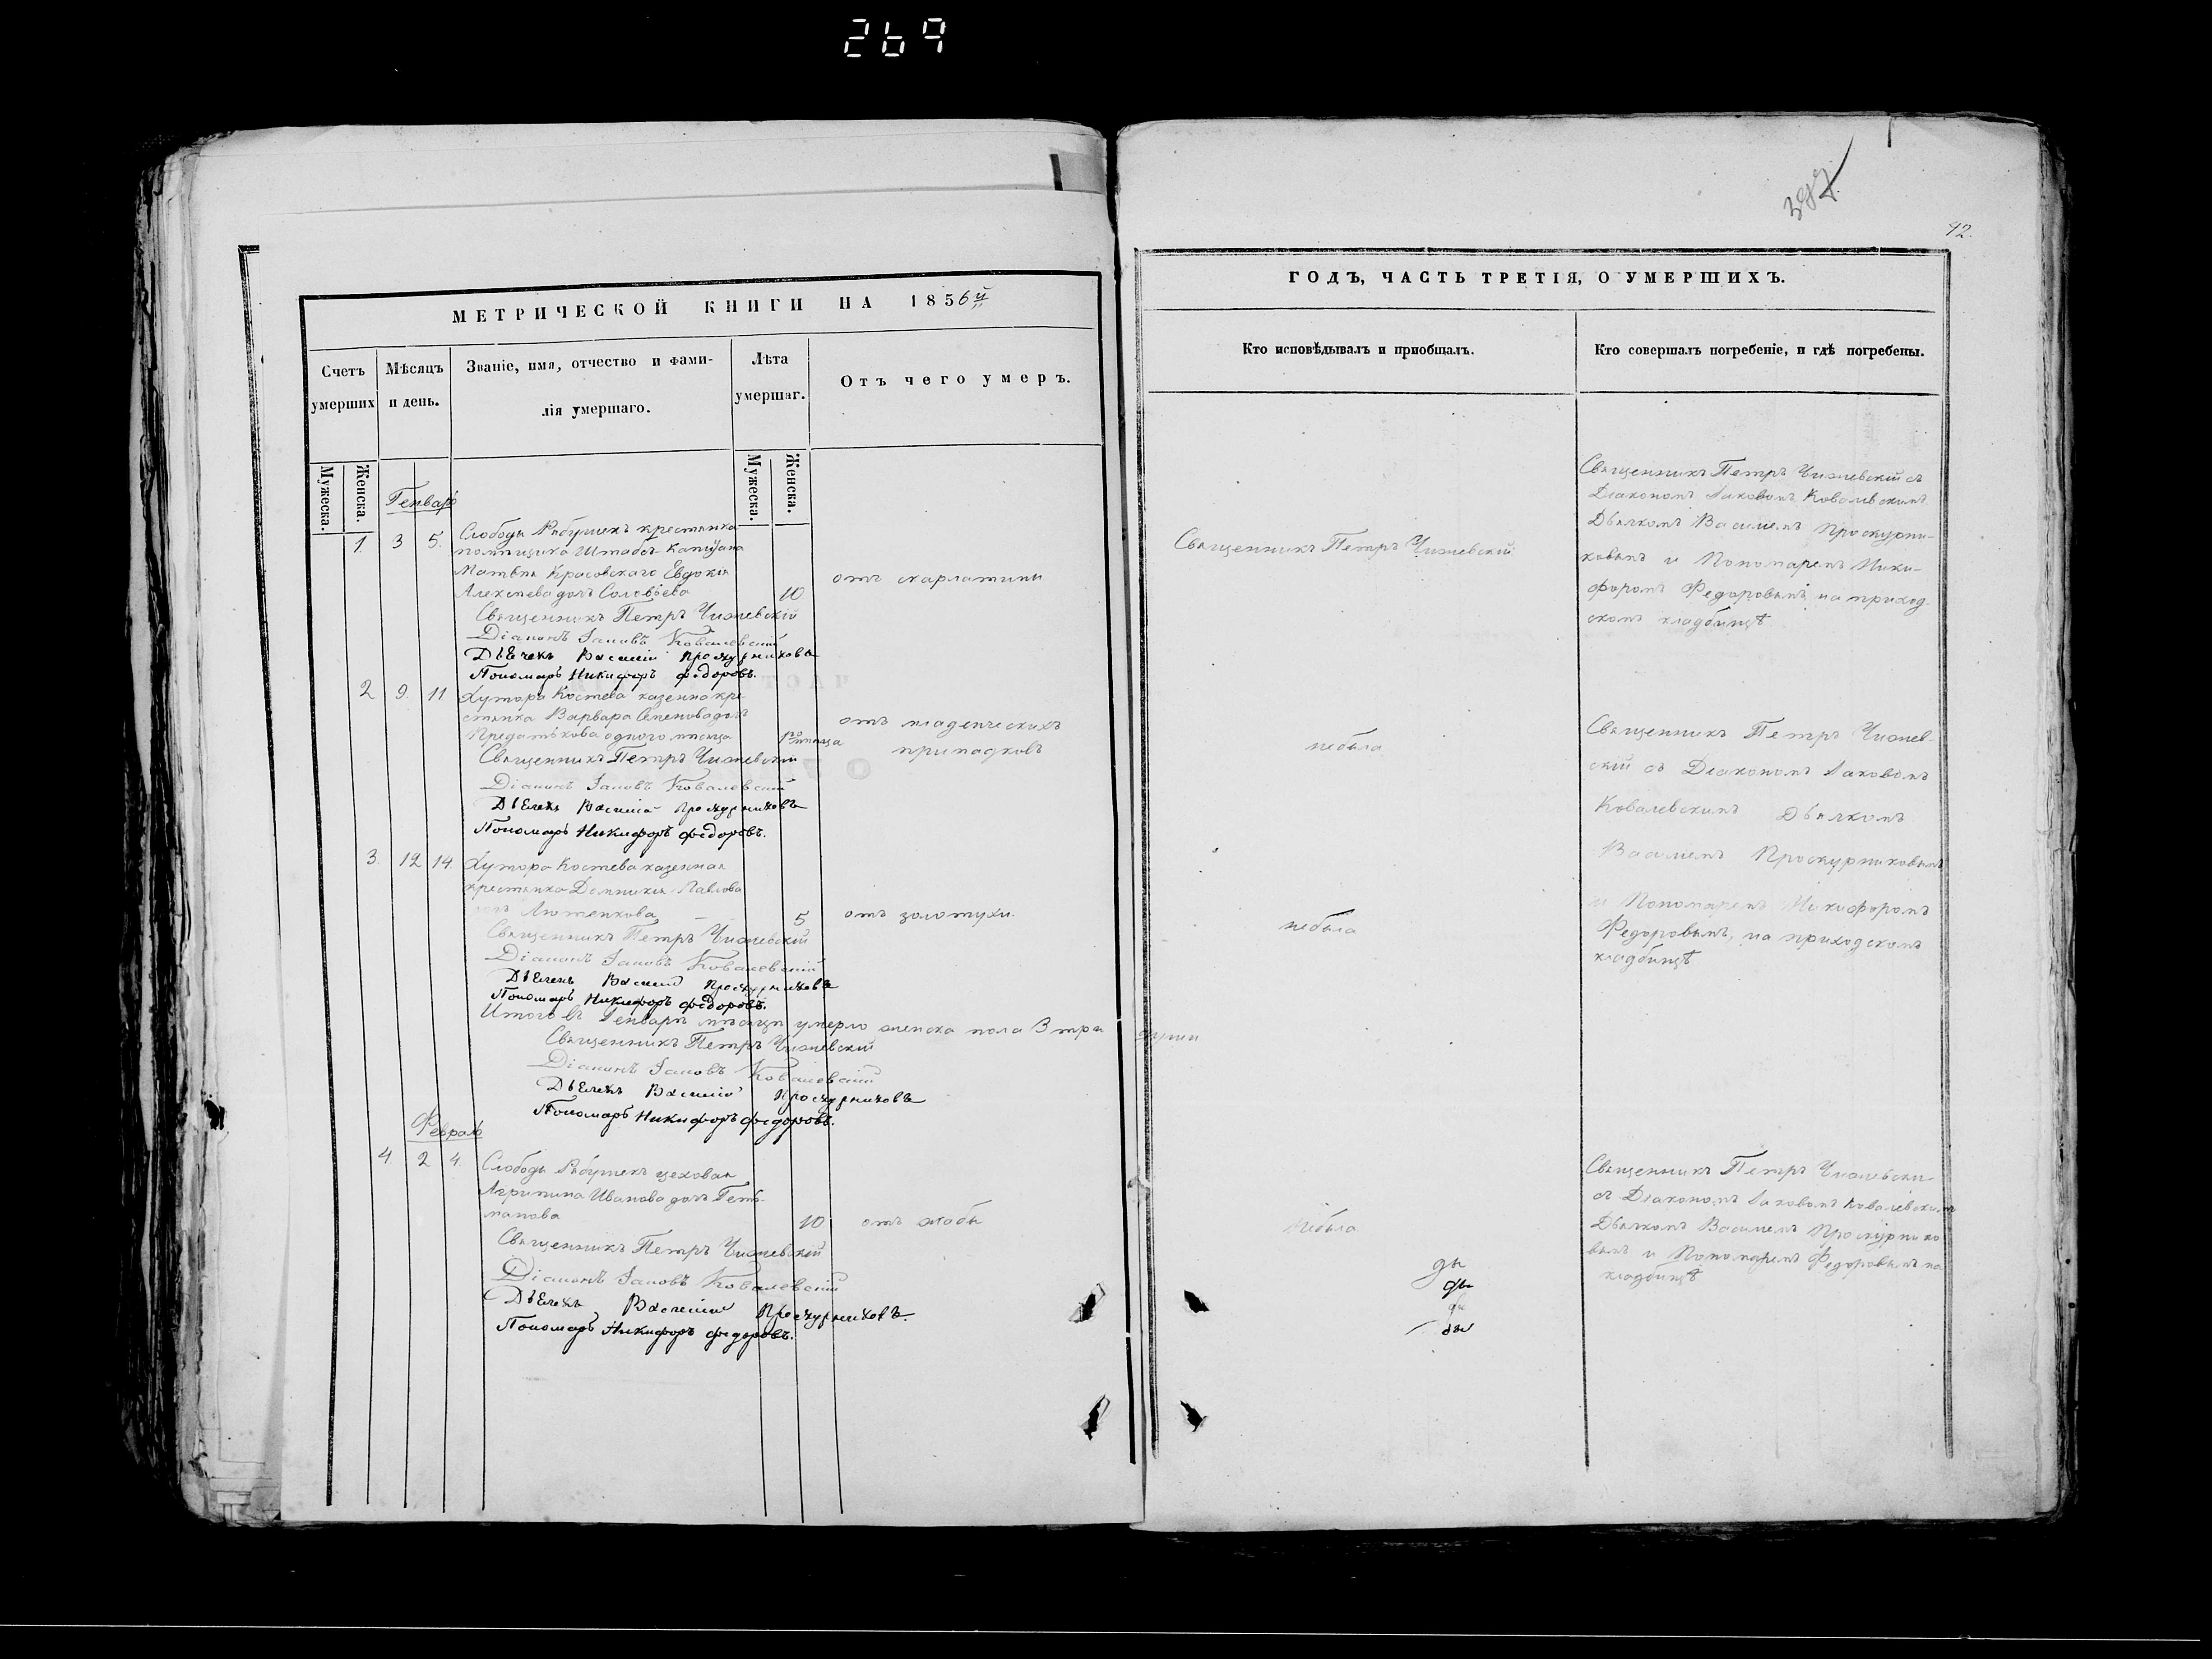 269
397
92.
МЕТРИЧЕСКОЙ КНИГИ НА 1856й
Счетъ умершихъ
Мѣсяцъ и день.
Званіе, имя, отчество и фами-
лія умершаго.
Лѣта умершаг.
Отъ чего умеръ.
Мужеска.
Женска.
Мужеска.
Женска.
Генварь
1. 3 5. Слободы Рябушекъ крестьянка
помѣщика Штабсъ-Капитана
Матвѣя Красовскаго Евдокія
Алексѣева дочь Соловьева 10 отъ скарлатины
Священникъ Петръ Чижевскій
Діаконъ Іаковъ Ковалевскій
Дьячекъ Василій Проскурниковъ
Пономарь Никифоръ Федоровъ.
2 9. 11 Хутора Костева казенно кре-
стьянка Варвара Семенова дочь
одного мѣсяца 1го мѣсяца отъ младенческихъ
припадковъ
Священникъ Петръ Чижевскій
Діаконъ Іаковъ Ковалевскій
Дьячекъ Василій Проскурниковъ
Пономарь Никифоръ Федоровъ.
3. 12 14. Хутора Костева казенная
крестьянка Домникія Павлова
дочь Лютенкова 5 отъ золотухи.
Священникъ Петръ Чижевскій
Діаконъ Іаковъ Ковалевскій
Дьячекъ Василій Проскурниковъ
Пономарь Никифоръ Федоровъ.
Итого въ Генварѣ мѣсяцѣ умерло женска пола 3 три души
Священникъ Петръ Чижевскій
Діаконъ Іаковъ Ковалевскій
Дьячекъ Василій Проскурниковъ
Пономарь Никифоръ Федоровъ.
Февраль
4 2 4. Слободы Рябушекъ цеховая
Агрипина Иванова дочь Геть-
манова 10 отъ жабы
Священникъ Петръ Чижевскій
Діаконъ Іаковъ Ковалевскій
Дьячекъ Василій Проскурниковъ.
Пономарь Никифоръ Федоровъ.
ГОДЪ, ЧАСТЬ ТРЕТІЯ, О УМЕРШИХЪ.
Кто исповѣдывалъ и пріобщалъ.
Кто совершалъ погребеніе, и гдѣ погребены.
Священникъ Петръ Чижевскій
Священникъ Петръ Чижевскій съ
Діакономъ Іаковомъ Ковалевскимъ
Дьячкомъ Василіемъ Проскурни-
ковымъ и Пономаремъ Ники-
форомъ Федоровымъ, на приход-
скомъ кладбищѣ
небыла
Священникъ Петръ Чижев-
скій съ Діакономъ Іаковомъ
Ковалевскимъ Дьячкомъ
Василіемъ Проскурниковымъ
и Пономаремъ Никифоромъ
Федоровымъ, на приходскомъ
кладбищѣ
небыла
небыла
Священникъ Петръ Чижевскій
съ Діакономъ Іаковомъ Ковалевскимъ
Дьячкомъ Василіемъ Проскурнико-
вымъ и Пономаремъ Федоровымъ на
кладбищѣ